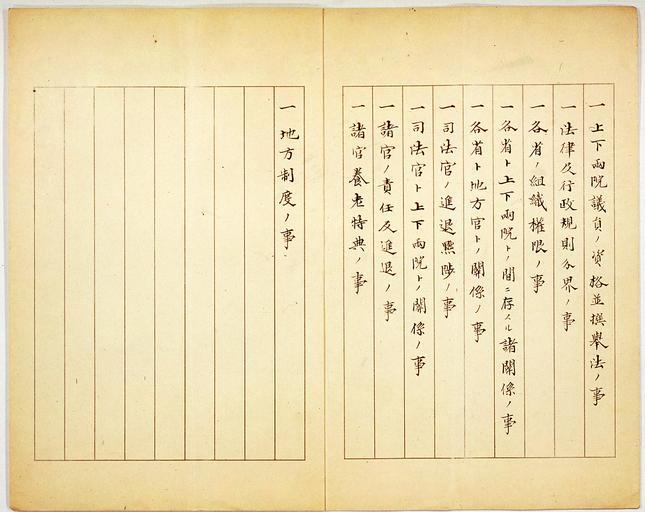 一上下両院議員ノ資格並撰挙法ノ事
一法律及行政規則分界ノ事
一各省ノ組織権限ノ事
一各省ト上下両院トノ間ニ存スル諸関係ノ事
一各省ト地方官トノ関係ノ事
一司法官ノ進退黜陟ノ事
一司法官ト上下両院トノ関係ノ事
一諸官ノ責任及進退ノ事
一諸官養老特典ノ事
一地方制度ノ事